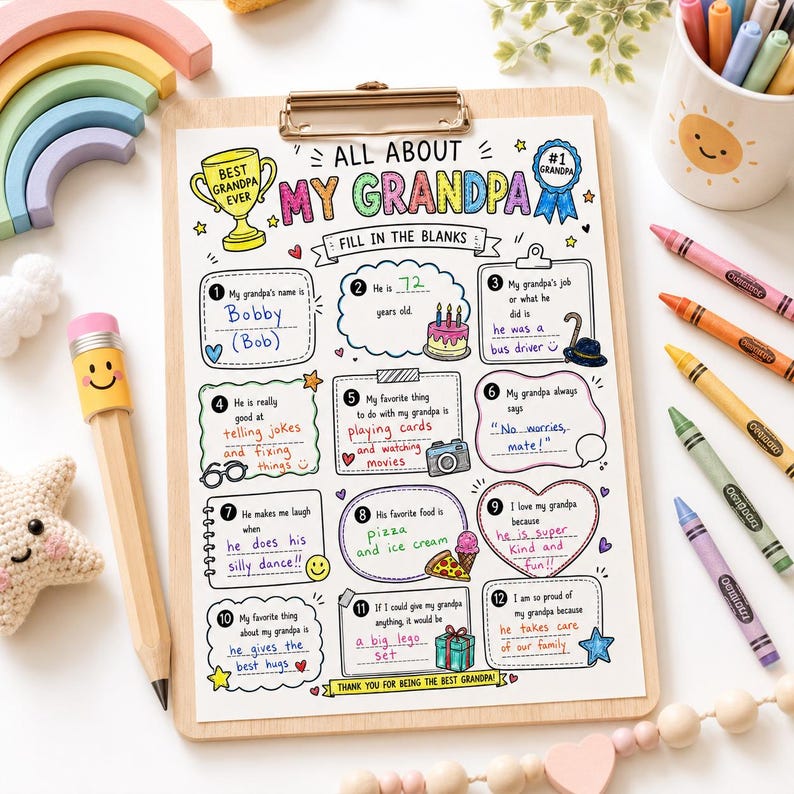 ALL ABOUT
MY GRANDPA
BEST
GRANDPA
EVER
#1
GRANDPA
FILL IN THE BLANKS
1 My grandpa's name is
Bobby
(Bob)
2 He is 72
years old.
3 My grandpa's job
or what he
did is
he was a
bus driver
4 He is really
good at
telling jokes
and fixing
things
5 My favorite thing
to do with my grandpa is
playing cards
and watching
movies
6 My grandpa always
says
"No worries,
mate!"
7 He makes me laugh
when
he does his
silly dance!!
8 His favorite food is
pizza
and ice cream
9 I love my grandpa
because
he is super
kind and
fun!!
10 My favorite thing
about my grandpa is
he gives the
best hugs
11 If I could give my grandpa
anything, it would be
a big lego
set
12 I am so proud of
my grandpa because
he takes care
of our family
THANK YOU FOR BEING THE BEST GRANDPA!